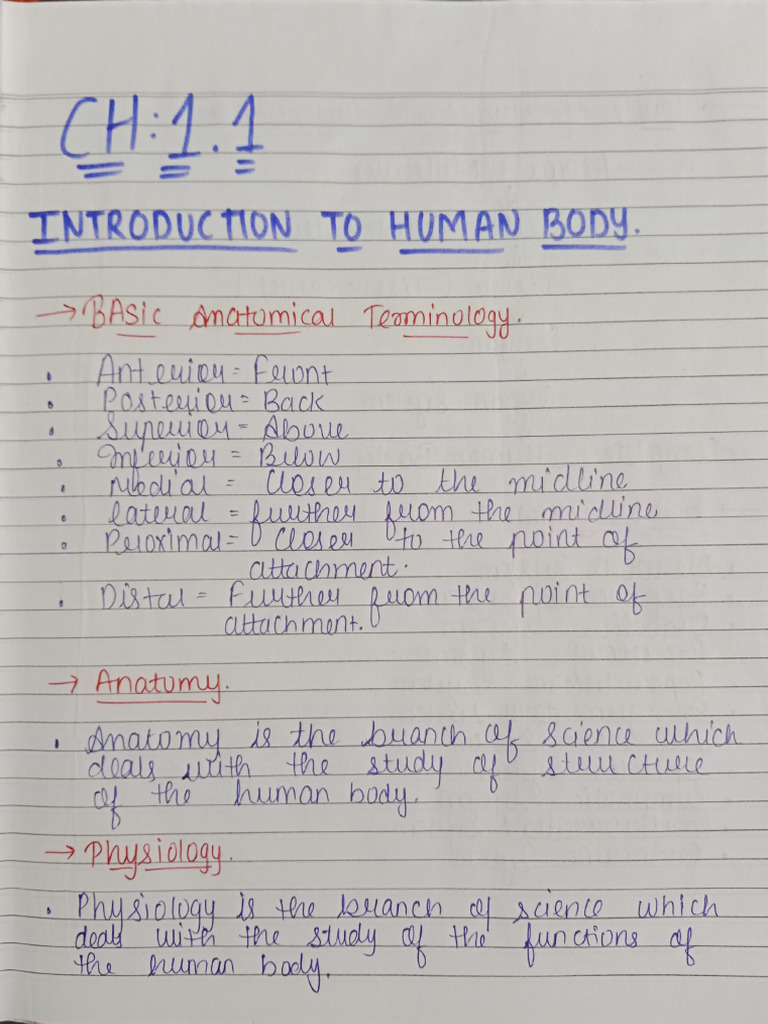 CH:1.1
INTRODUCTION TO HUMAN BODY.
→ BASic Anatomical Terminology.
• Anterior = Front
• Posterior = Back
• Superior = Above
• Inferior = Below
• Medial = Closer to the midline
• lateral = further from the midline
• Proximal = Closer to the point of
attachment.
• Distal = Further from the point of
attachment.
→ Anatomy.
• Anatomy is the branch of science which
deals with the study of structure
of the human body.
→ Physiology.
• Physiology is the branch of science which
deals with the study of the functions of
the human body.